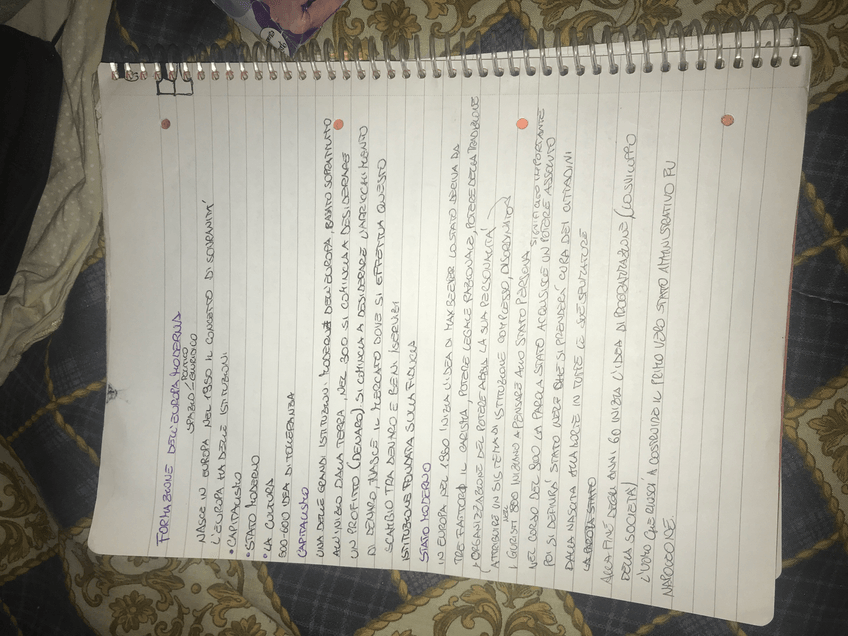 FORMAZIONE DELL'EUROPA MODERNA
SPAZIO POLITICO
GIURIDICO
NASCE IN EUROPA NEL 1950 IL CONCETTO DI SOVRANITA'
L'EUROPA HA DELLE ISTITUZIONI
• CAPITALISMO
• STATO MODERNO
• LA CULTURA
500-600 IDEA DI TOLLERANZA
CAPITALISMO
UNA DELLE GRANDI ISTITUZIONI MODERNE DELL'EUROPA, BASATO SOPRATTUTTO
ALL'INIZIO DALLA TERRA, NEL 300 SI COMINCIA A DESIDERARE
UN PROFITTO (DENARO) SI COMINCIA A DESIDERARE L'ARRICCHIMENTO
DI DENARO, NASCE IL MERCATO DOVE SI EFFETTUA QUESTO
SCAMBIO TRA DENARO E BENI /SERVIZI
ISTITUZIONE FONDATA SULLA FIDUCIA
STATO MODERNO
IN EUROPA NEL 1950 INIZIA L'IDEA DI MAX LO STATO DERIVA DA
TRE FATTORI IL CARISMA, POTERE LEGALE RAZIONALE, POTERE DELLA TRADIZIONE
(ORGANIZZAZIONE DEL POTERE ABBIA LA SUA PERSONALITA')
ATTRIBUIRE UN SISTEMA DI ISTITUZIONE COMPLESSO,
I GIURISTI 800 INIZIANO A PENSARE ALLO STATO PERSONA
NEL CORSO DEL 800 LA PAROLA STATO ACQUISISCE UN SIGNIFICATO IMPORTANTE POTERE ASSOLUTO
POI SI DEFINIRA' STATO CHE SI PRENDERA' CURA DEI CITTADINI
DALLA NASCITA ALLA MORTE IN TUTTE LE SUE SFUMATURE
LA PAROLA STATO
ALLA FINE DEGLI ANNI 60 INIZIA L'IDEA DI (LO SVILUPPO
DELLA SOCIETA)
L'UOMO CHE RIUSCI A COSTRUIRE IL PRIMO VERO STATO AMMINISTRATIVO FU
NAPOLEONE.